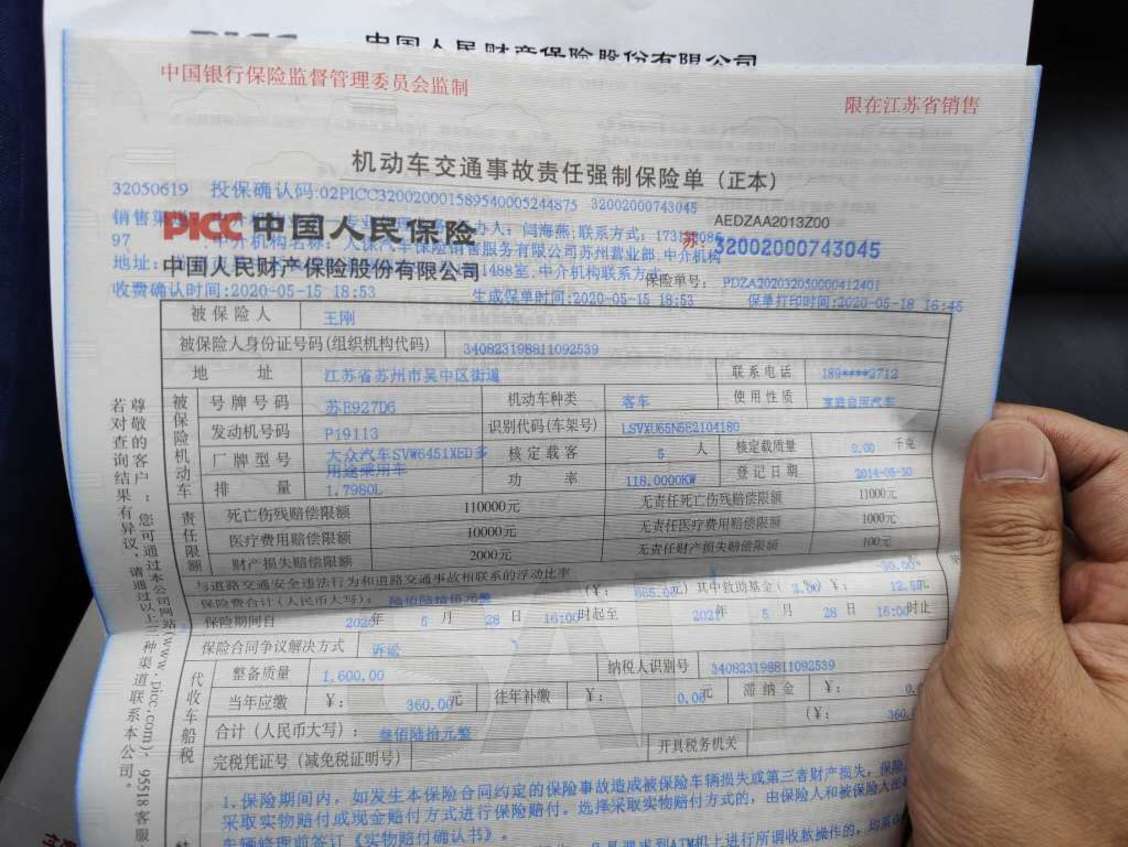 PICC 中国人民财产保险股份有限公司
中国银行保险监督管理委员会监制
限在江苏省销售
机动车交通事故责任强制保险单（正本）
32050619 投保确认码:02PICC320020001589540005244875 32002000743045
AEDZAA2013Z00
办人: 闫海燕;联系方式:
PICC 中国人民保险
苏: 32002000743045
97 .中介机构名称: 人保汽车保险销售服务有限公司苏州营业部.中介机构
地址:
中国人民财产保险股份有限公司
1488室.中介机构联系方式:
保险单号: PDZA202032050000412401
收费确认时间:2020-05-15 18:53 生成保单时间:2020-05-15 18:53 保单打印时间:2020-05-18 16:45
被保险人 王刚
被保险人身份证号码(组织机构代码) 340823198811092539
地 址 江苏省苏州市吴中区街道 联系电话 189****2712
被保险机动车
号牌号码 苏E927D6 机动车种类 客车 使用性质 家庭自用汽车
发动机号码 P19113 识别代码(车架号) LSVXU65N5E2104180
厂牌型号 大众汽车SVW6451XED多用途乘用车 核定载客 5 人 核定载质量 0.00 千克
排 量 1.7980L 功 率 118.0000KW 登记日期 2014-05-30
责任限额
死亡伤残赔偿限额 110000元 无责任死亡伤残赔偿限额 11000元
医疗费用赔偿限额 10000元 无责任医疗费用赔偿限额 1000元
财产损失赔偿限额 2000元 无责任财产损失赔偿限额 100元
与道路交通安全违法行为和道路交通事故相联系的浮动比率 -30.00%
保险费合计(人民币大写): 陆佰陆拾伍元整 (¥: 665.0元) 其中救助基金( %) ¥:
保险期间自 2020年 5 月 28 日 16:00时起至 2021年 5 月 28 日 16:00时止
保险合同争议解决方式 诉讼
代收车船税
整备质量 1,600.00 纳税人识别号 340823198811092539
当年应缴 ¥: 360.00元 往年补缴 ¥: 0.00元 滞纳金 ¥:
合计(人民币大写): 叁佰陆拾元整 (¥: 360.
完税凭证号(减免税证明号) 开具税务机关
1.保险期间内, 如发生本保险合同约定的保险事故造成被保险车辆损失或第三者财产损失, 保险
采取实物赔付或现金赔付方式进行保险赔付。选择采取实物赔付方式的, 由保险人和被保险人
车辆修理前签订《实物赔付确认书》。
要求到ATM机上进行所谓收款操作的,
尊敬的客户: 您可通过本公司网站(www.picc.com)、95518客服
若对查询结果有异议, 请通过以上三种渠道联系本公司。